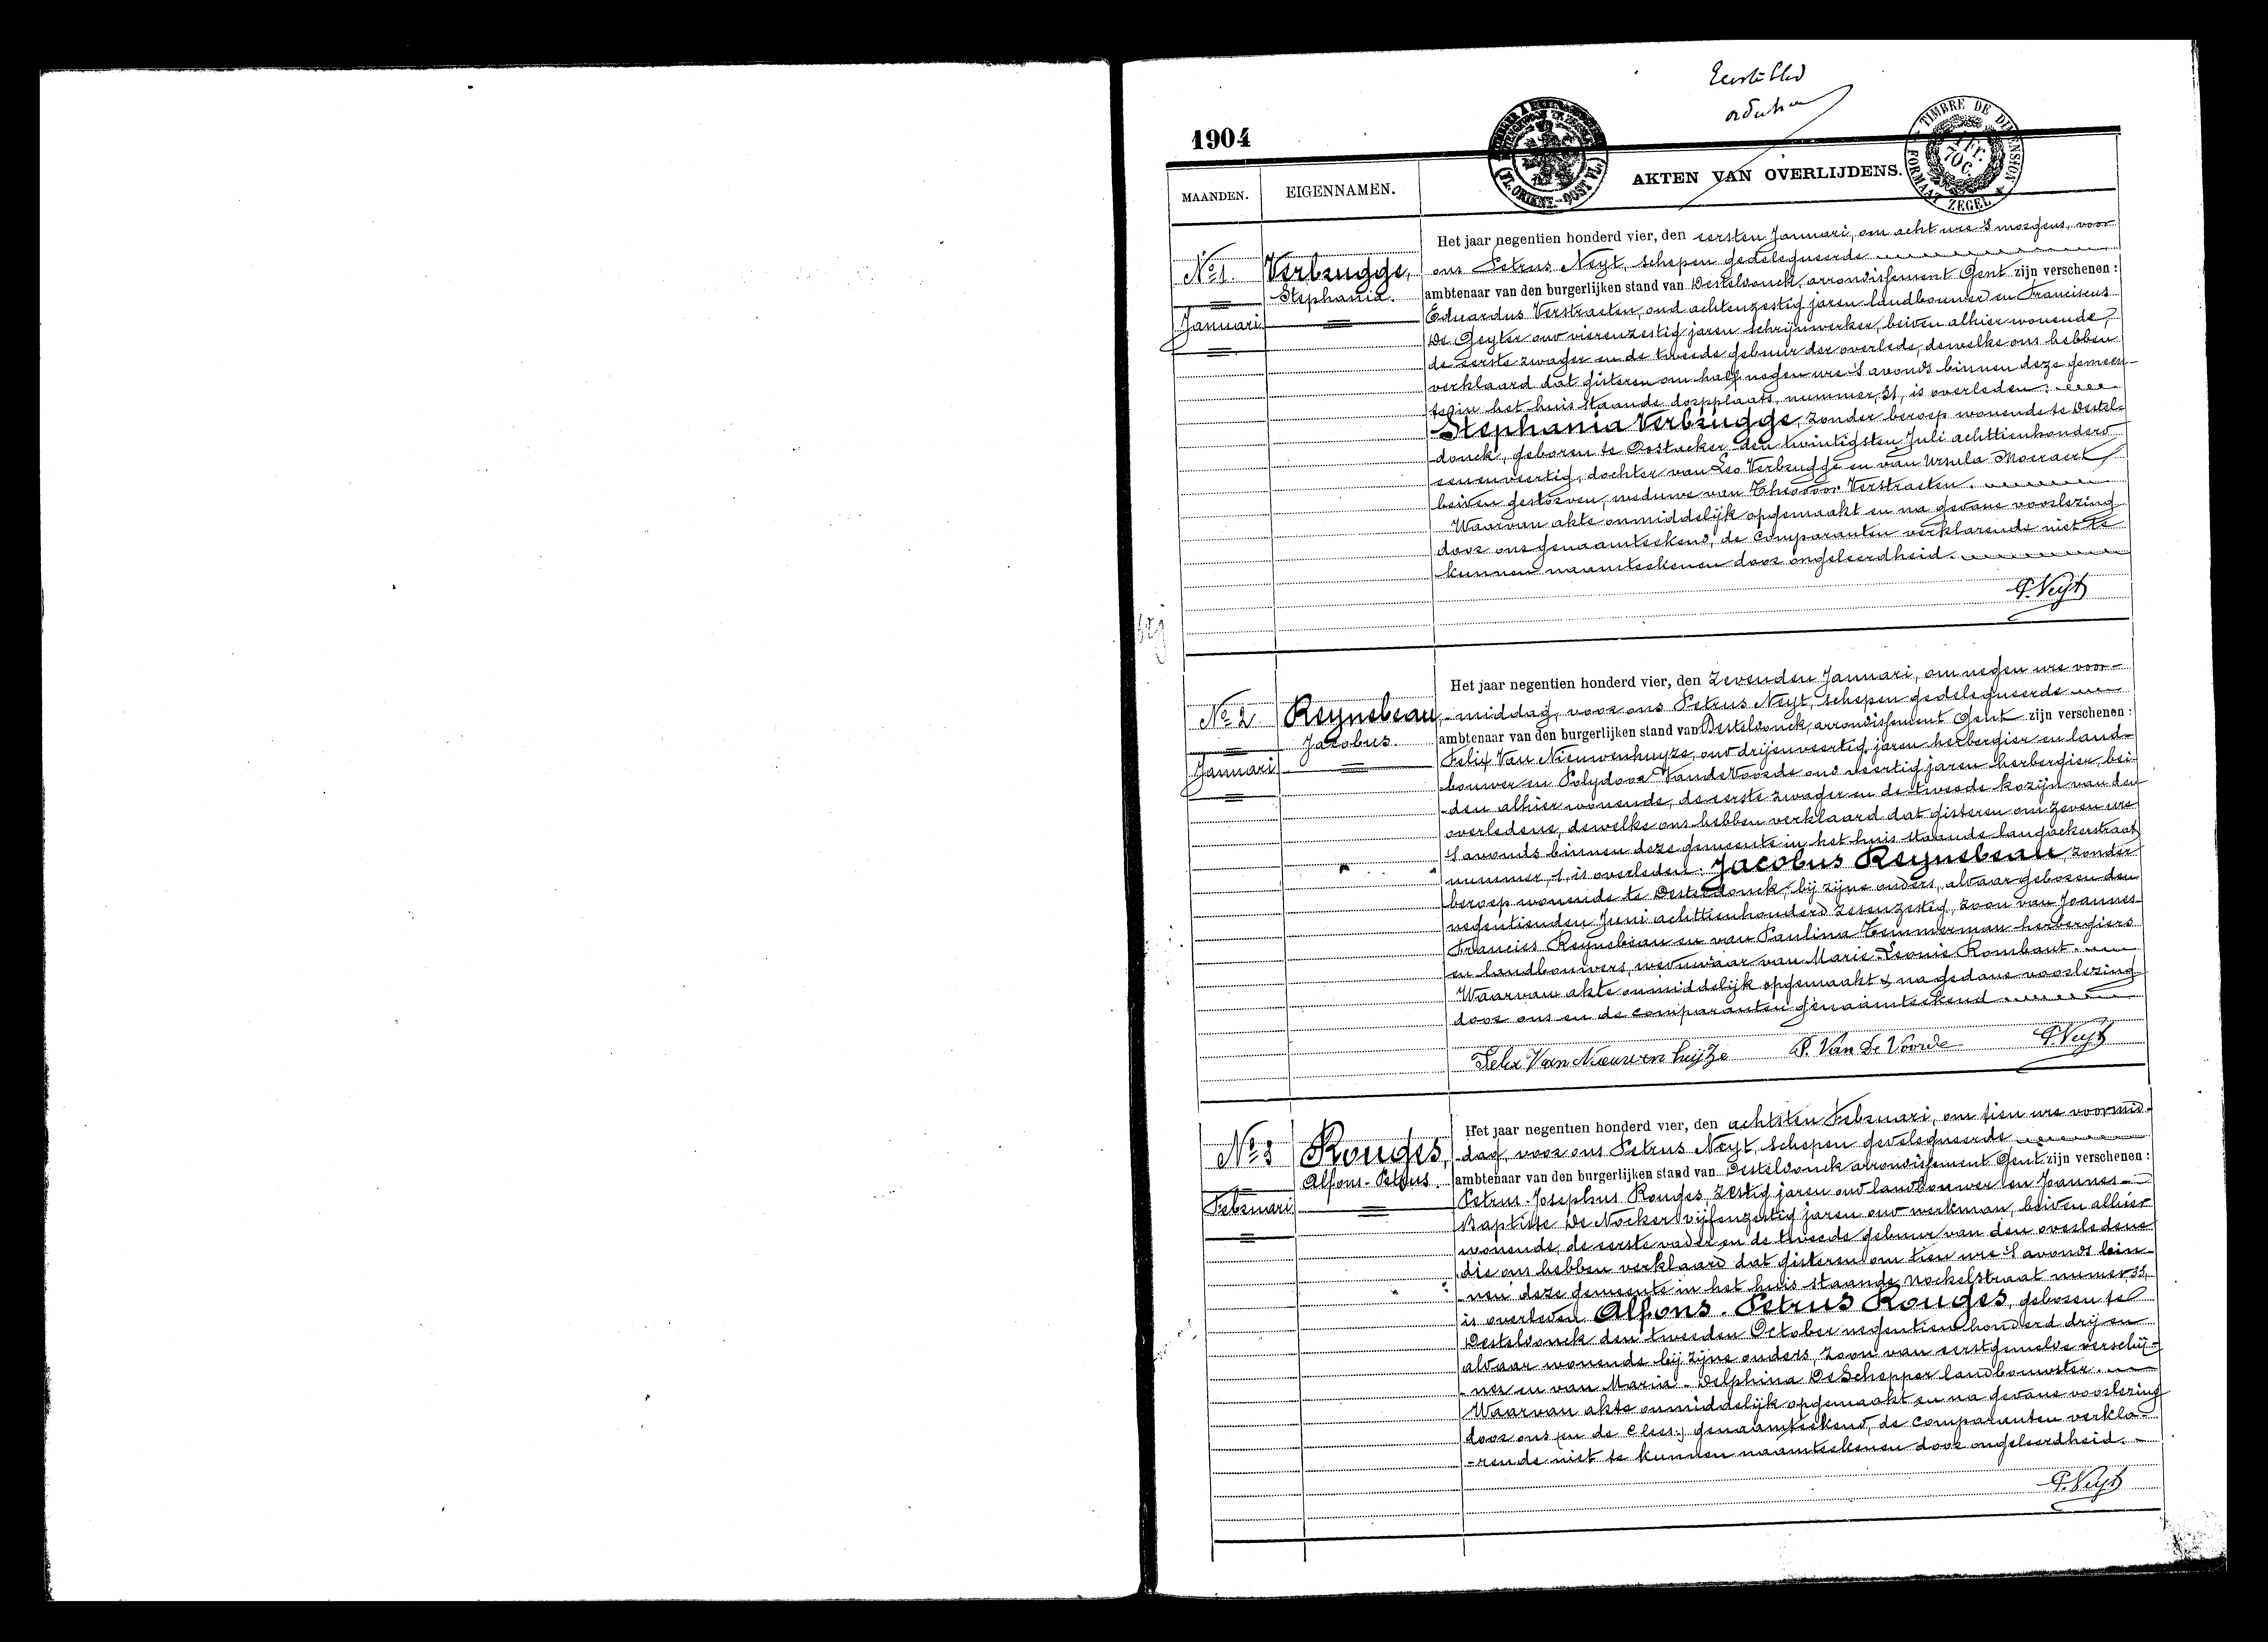 Eerste blad
1904
TIMBRE DE DIMENSION
FORMAAT ZEGEL
1 Fr.
70 C.
(FL. ORIENT.-OOST VL.)
MAANDEN. EIGENNAMEN. AKTEN VAN OVERLIJDENS.
No 1. Verbrugge, Stephania.
Januari
Het jaar negentien honderd vier, den eersten Januari, om acht ure 's morgens, voor
ons Petrus Neyt, schepen gedelegueerde
ambtenaar van den burgerlijken stand van Desteldonck, arrondissement Gent zijn verschenen:
Eduardus Verstraeten, oud achtenzestig jaren landbouwer en Franciscus
De Geyter oud vierenzestig jaren schrijnwerker, beiden alhier wonende,
de eerste zwager en de tweede gebuur der overlede, dewelke ons hebben
verklaard dat gisteren om half negen ure 's avonds binnen deze gemeen-
te in het huis staande dorpplaats, nummer, 31, is overleden:
Stephania Verbrugge, zonder beroep wonende te Destel-
donck, geboren te Oostacker den twintigsten Juli achttienhonderd
eenenveertig, dochter van Leo Verbrugge en van Ursula Moeraert
beiden gestorven, weduwe van Theodoor Verstraeten.
Waarvan akte onmiddelijk opgemaakt en na gedane voorlezing
door ons genaamteekend, de comparanten verklarende niet te
kunnen naamteekenen door ongeleerdheid.
P. Neyt
No 2 Reynebeau, Jacobus.
Januari
Het jaar negentien honderd vier, den zevenden Januari, om negen ure voor-
-middag, voor ons Petrus Neyt, schepen gedelegueerde
ambtenaar van den burgerlijken stand van Desteldonck, arrondissement Gent zijn verschenen:
Felix Van Nieuwenhuyze, oud drijenveertig jaren herbergier en land-
bouwer en Polydoor Vande Voorde oud veertig jaren herbergier, bei-
-den alhier wonende, de eerste zwager en de tweede kozijn van den
overledene, dewelke ons hebben verklaard dat gisteren om zeven ure
's avonds binnen deze gemeente in het huis staande langackerstraat
nummer, 1, is overleden: Jacobus Reynebeau, zonder
beroep wonende te Desteldonck, bij zijne ouders, aldaar geboren den
negentienden Juni achttienhonderd zesenzestig, zoon van Joannes-
Francies Reynebeau en van Paulina Temmerman herbergiers
en landbouwers, weduwaar van Marie-Leonie Rombaut.
Waarvan akte onmiddelijk opgemaakt & na gedane voorlezing
door ons en de comparanten genaamteekend
Felix Van Nieuwenhuyze P. Van De Voorde P. Neyt
No 3 Rouges, Alfons-Petrus.
Februari
Het jaar negentien honderd vier, den achtsten Februari, om tien ure voormid-
dag, voor ons Petrus Neyt, schepen gedelegueerde
ambtenaar van den burgerlijken stand van Desteldonck arrondissement Gent zijn verschenen:
Petrus-Josephus Rouges, zestig jaren oud landbouwer en Joannes-
Baptiste De Nocker vijfenzestig jaren oud werkman, beiden alhier
wonende, de eerste vader en de tweede gebuur van den overledene
die ons hebben verklaard dat gisteren om tien ure 's avonds bin-
-nen deze gemeente in het huis staande Mockelstraat numer, 33,
is overleden Alfons-Petrus Rouges, geboren te
Desteldonck den tweeden October negentien honderd drij en
aldaar wonende bij zijne ouders, zoon van eerstgemelde verschij-
-ner en van Maria-Delphina De Schepper landbouwster.
Waarvan akte onmiddelijk opgemaakt en na gedane voorlezing
door ons genaamteekend, de comparanten verkla-
-rende niet te kunnen naamteekenen door ongeleerdheid.
P. Neyt